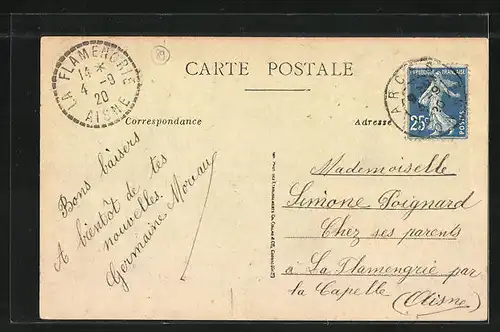 LA FLAMENGRIE
14 *
4 -9
20
AISNE
CARTE POSTALE
Correspondance
Adresse
ARC
RÉPUBLIQUE FRANÇAISE
25c
POSTES
Bons baisers
A bientôt de tes
nouvelles.
Germaine
Mademoiselle
Simone Poignard
Chez ses parents
à La Flamengrie par
la Capelle (Aisne)